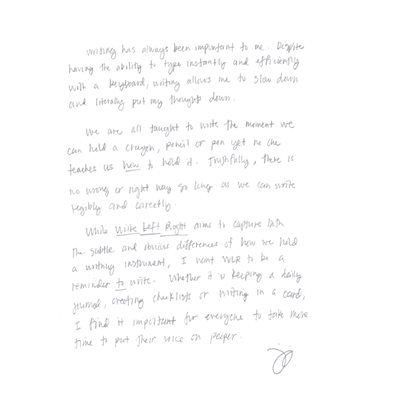 writing has always been important to me. Despite
having the ability to type instantly and efficiently
with a keyboard, writing allows me to slow down
and literally put my thoughts down.
We are all taught to write the moment we
can hold a crayon, pencil or pen yet no one
teaches us how to hold it. Truthfully, there is
no wrong or right way so long as we can write
legibly and correctly.
While Write Left Right aims to capture both
the subtle and obvious differences of how we hold
a writing instrument, I want WLR to be a
reminder to write. Whether it is keeping a daily
journal, creating checklists or writing in a card,
I find it important for everyone to take more
time to put their voice on paper.